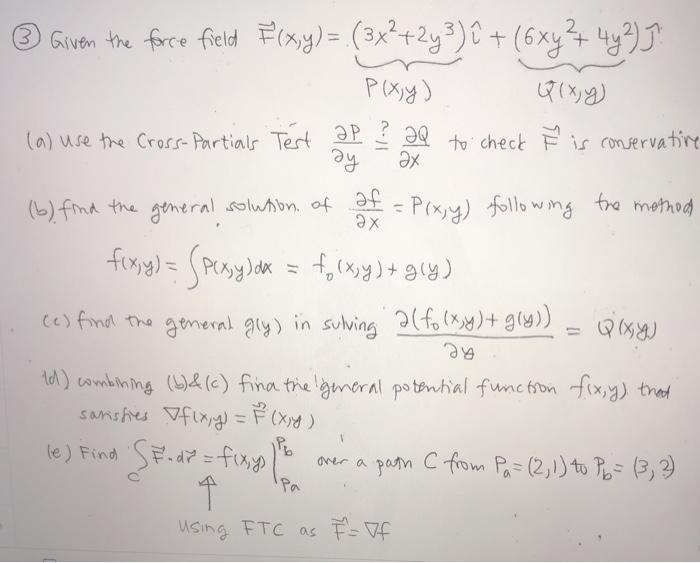 ③ Given the force field F⃗(x,y) = (3x²+2y³) î + (6xy²+ 4y²) ĵ
P(x,y) Q(x,y)
(a) use the Cross-Partials Test ∂P/∂y ?= ∂Q/∂x to check F⃗ is conservative
(b) find the general solution. of ∂f/∂x = P(x,y) following the method
f(x,y) = ∫P(x,y)dx = f₀(x,y) + g(y)
(c) find the general g(y) in solving ∂(f₀(x,y) + g(y))/∂y = Q(x,y)
(d) combining (b)&(c) find the general potential function f(x,y) that
satisfies ∇f(x,y) = F⃗(x,y)
(e) Find ∫_C F⃗·dr⃗ = f(x,y) |_Pa^Pb over a path C from Pa = (2,1) to Pb = (3,2)
↑
using FTC as F⃗ = ∇f